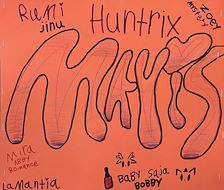 Rumi
jinu
Huntrix
Zoey
MAYIS
Mira
ABBY
ROMANCE
Lamantia
BABY Saja
BOBBY